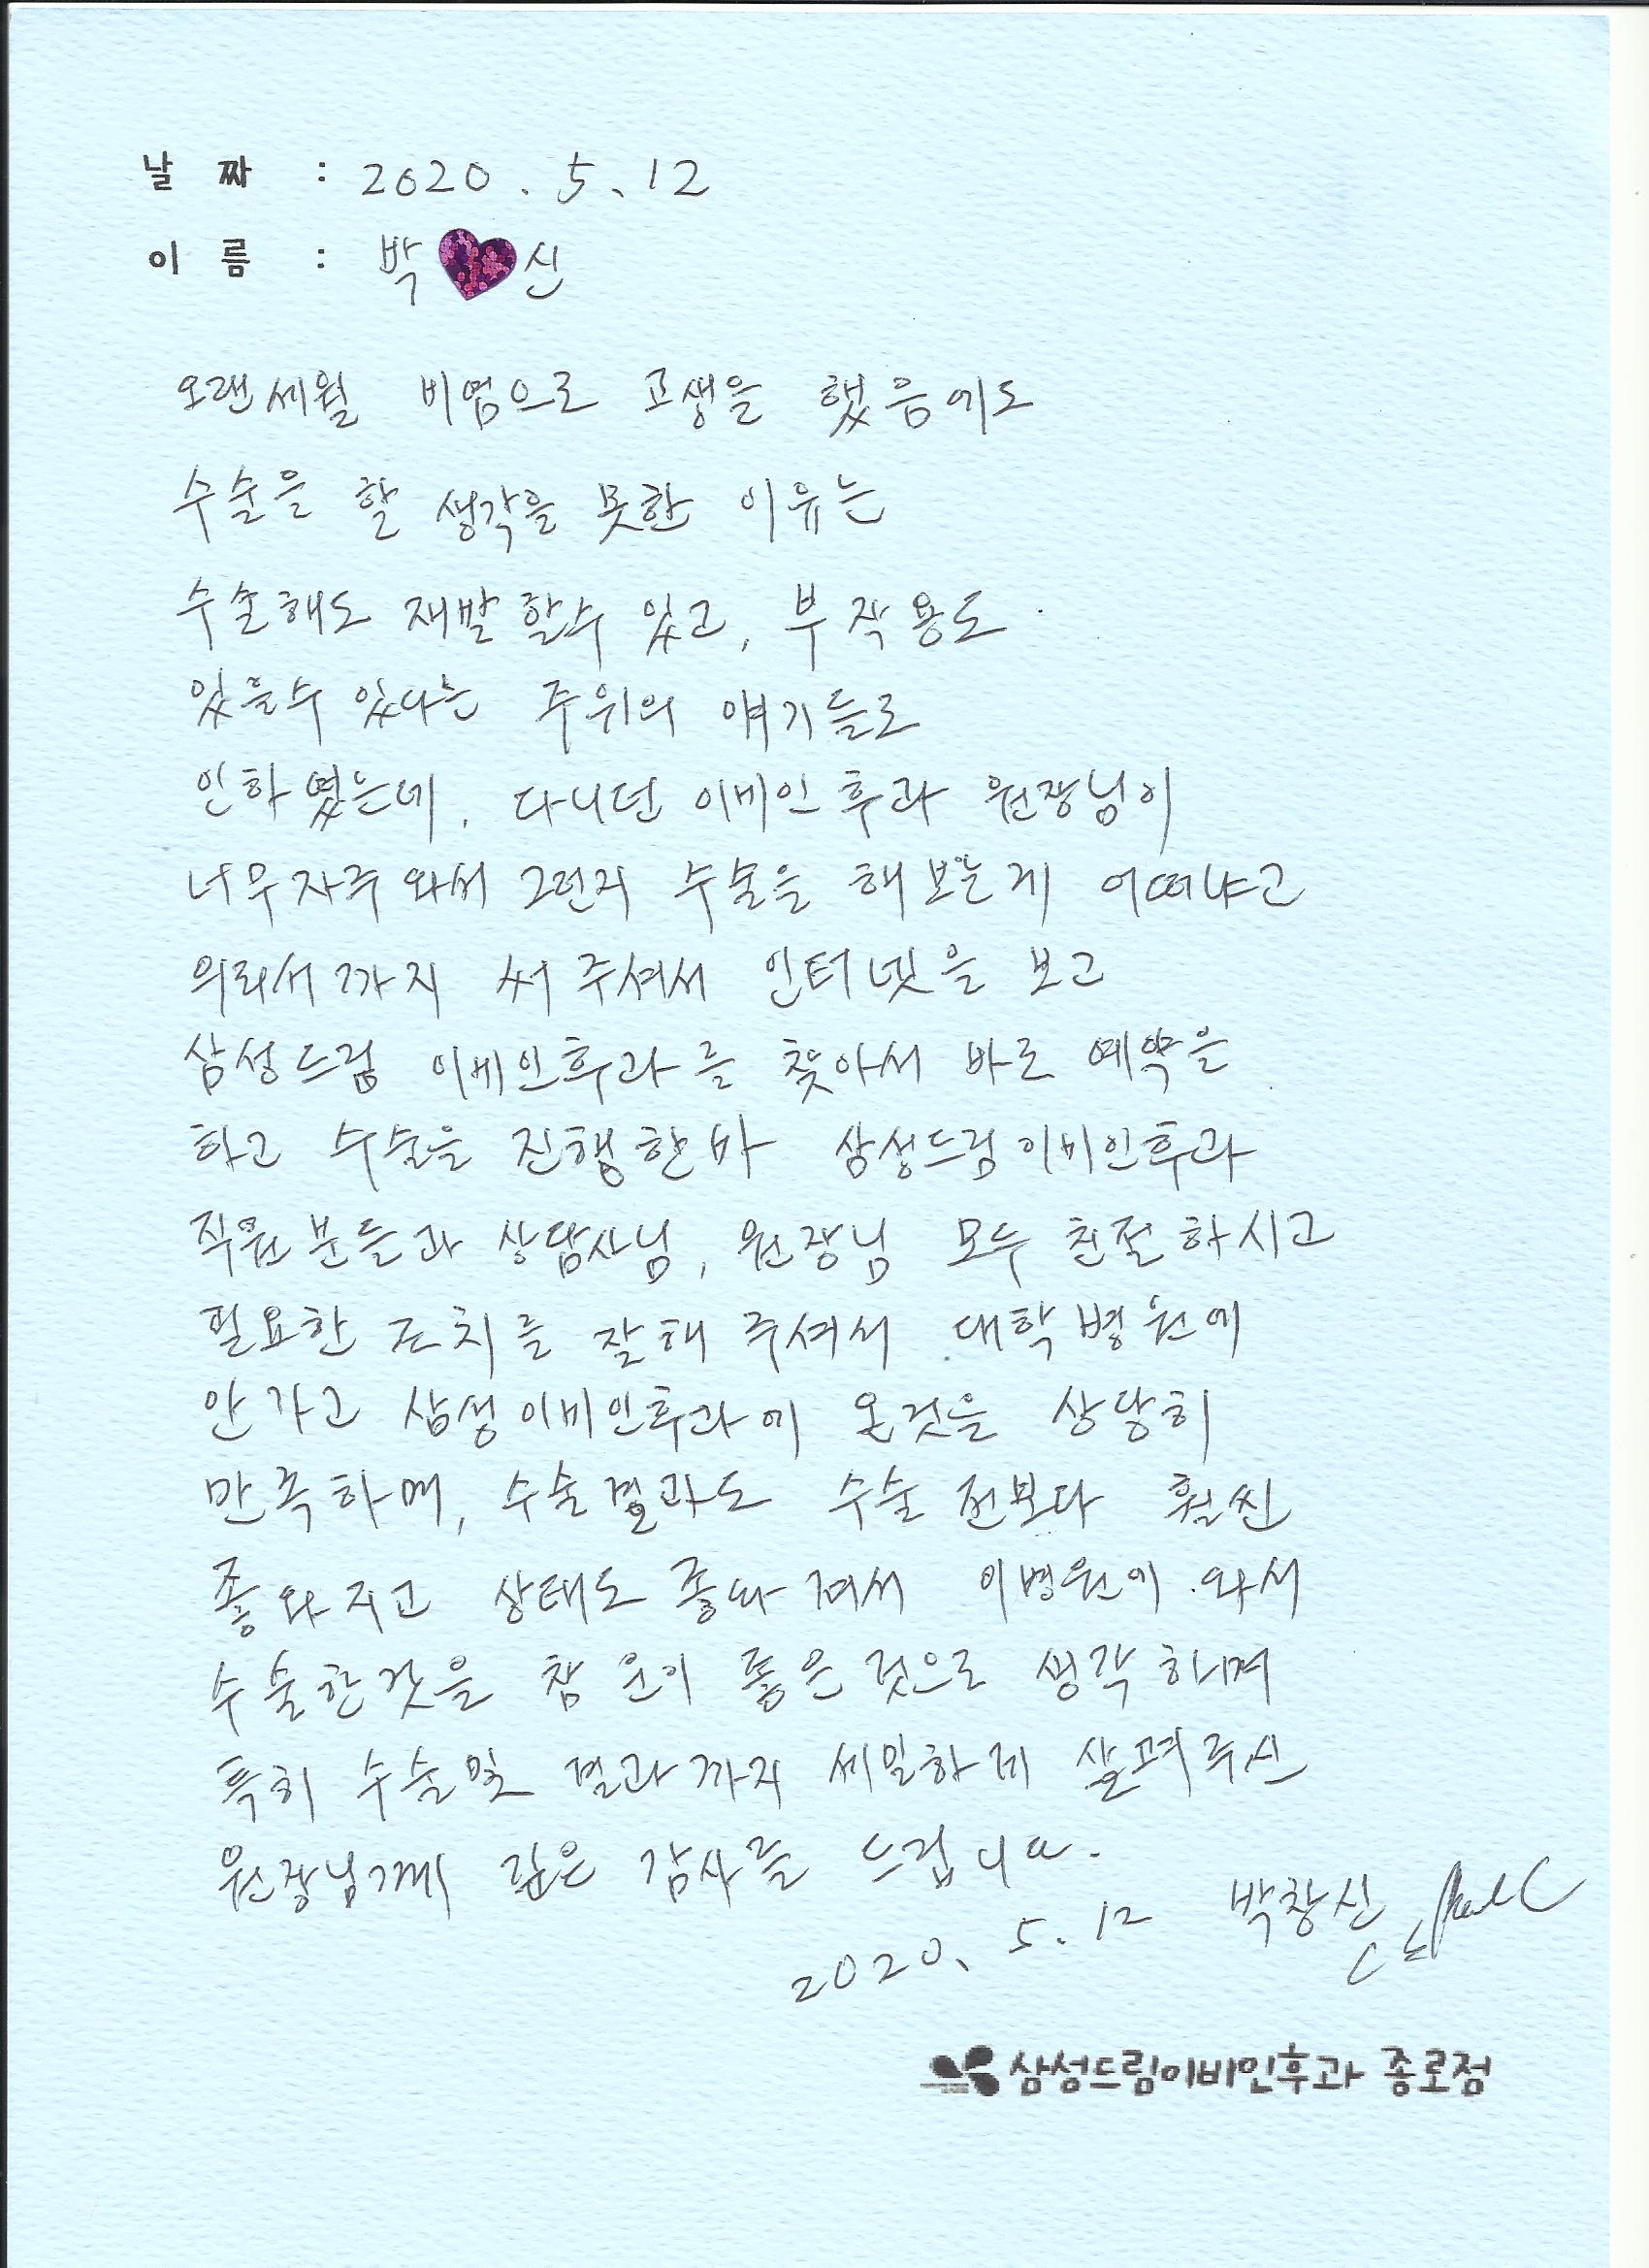 날 짜 : 2020. 5. 12
이 름 : 박 신
오랜세월 비염으로 고생을 했음에도
수술을 할 생각을 못한 이유는
수술해도 재발 할수 있고, 부작용도
있을수 있다는 주위의 얘기들로
인하였는데, 다니던 이비인후과 원장님이
너무자주 와서 그런지 수술을 해보는게 어떠냐고
의뢰서까지 써 주셔서 인터넷을 보고
삼성드림 이비인후과를 찾아서 바로 예약을
하고 수술을 진행한바 삼성드림이비인후과
직원분들과 상담사님, 원장님 모두 친절하시고
필요한 조치를 잘해 주셔서 대학병원에
안가고 삼성이비인후과에 온것을 상당히
만족하며, 수술결과도 수술 전보다 훨씬
좋와지고 상태도 좋와져서 이병원에 와서
수술한것을 참 운이 좋은 것으로 생각하며
특히 수술및 결과까지 세밀하게 살펴주신
원장님께 깊은 감사를 드립니다.
2020. 5. 12 박창신
삼성드림이비인후과 종로점